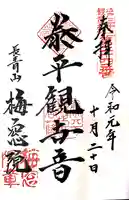 奉拝
令和元年
十月二十日
恭平観世音
長青山
梅窓院